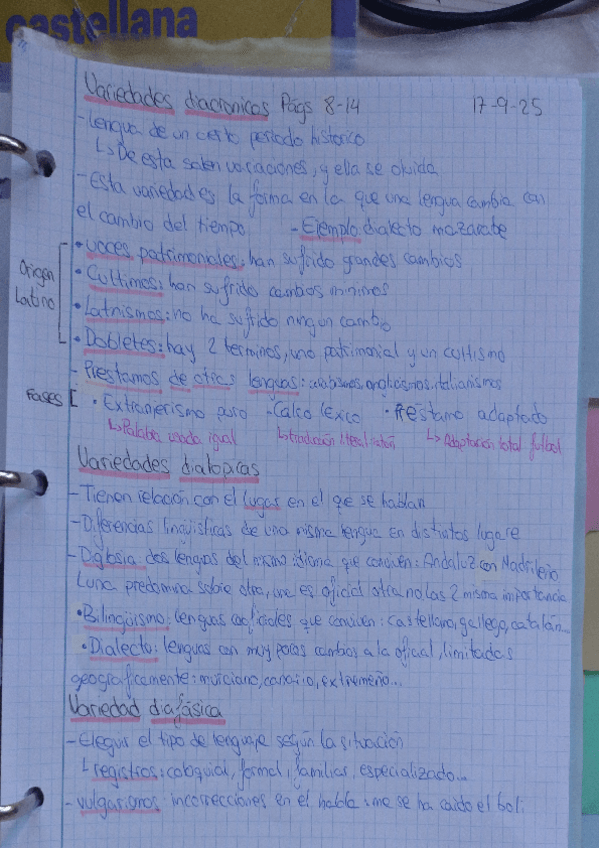 castellana
Variedades diacrónicas Págs 8-14 17-9-25
-Lengua de un cierto periodo histórico
↳De esta salen variaciones, y ella se olvida
-Esta variedad es la forma en la que una lengua cambia con
el cambio del tiempo. -Ejemplo dialecto mozarabe
Origen Latino
• voces patrimoniales: han sufrido grandes cambios
• Cultimos: han sufrido cambios minimos
• Latinismos: no ha sufrido ningun cambio
• Dobletes: hay 2 terminos, uno patrimonial y un cultismo
- Prestamos de otras lenguas: anglicismos, italianismos
Fases [ • Extranjerismo puro -Calco lexico • Prestamo adaptado
↳Palabra usada igual ↳traducción literal ↳Adaptación total futbol
Variedades diatopicas
-Tienen relación con el lugar en el que se hablan
-Diferencias lingüisticas de una misma lengua en distintos lugare
-Diglosia: dos lenguas del mismo idioma que conviven: Andaluz con Madrileño
↳una predomina sobre otra, una es oficial otra no, las 2 misma importancia
•Bilingüismo: lenguas cooficiales que conviven: castellano, gallego, catalán...
•Dialecto: lenguas con muy pocos cambios a la oficial, limitados
geograficamente: murciano, canario, extremeño...
Variedad diafásica
-Eleguir el tipo de lenguaje según la situación
↳registros: coloquial, formal, familiar, especializado...
- vulgarismos: incorrecciones en el habla: me se ha caido el boli